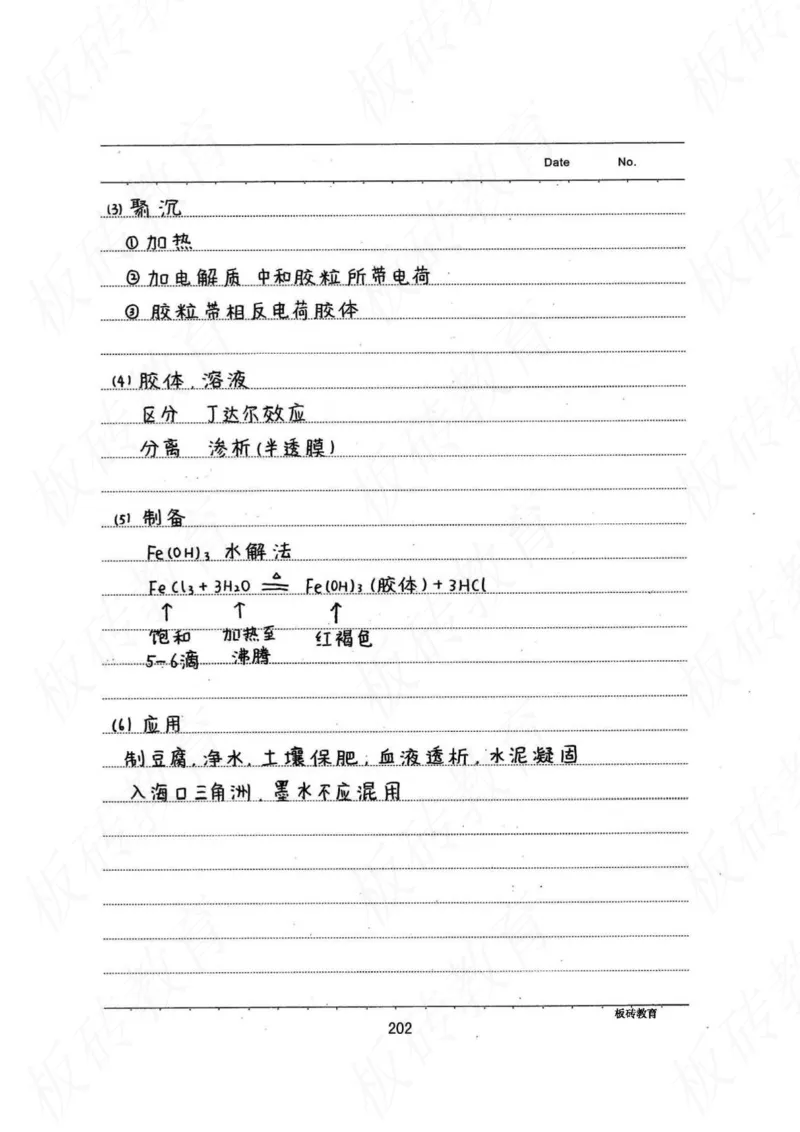 Date No.
(3) 聚沉
① 加热
② 加电解质 中和胶粒所带电荷
③ 胶粒带相反电荷胶体
(4) 胶体、溶液
区分 丁达尔效应
分离 渗析(半透膜)
(5) 制备
Fe(OH)₃ 水解法
FeCl₃ + 3H₂O ≜ Fe(OH)₃ (胶体) + 3HCl
↑ ↑ ↑
饱和 加热至 红褐色
5-6滴 沸腾
(6) 应用
制豆腐、净水、土壤保肥;血液透析、水泥凝固
入海口三角洲、墨水不应混用
板砖教育
202